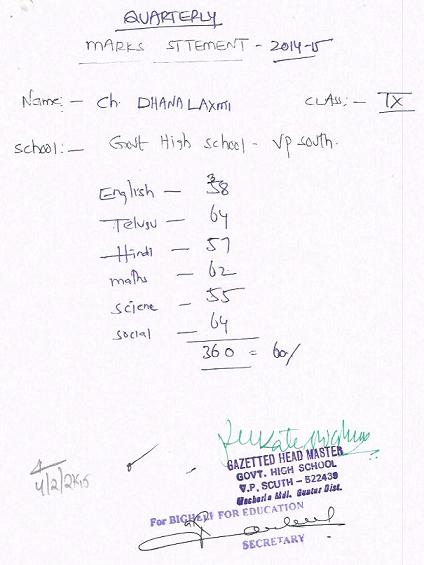 QUARTERLY
MARKS STTEMENT - 2014-15
Name:- Ch. DHANA LAXMI CLASS:- IX
School:- Govt High school - VP south.
English - 58
Telugu - 64
Hindi - 57
maths - 62
sciene - 55
social - 64
360 = 60%
GAZETTED HEAD MASTER
GOVT. HIGH SCHOOL
V.P. SOUTH - 522439
Macherla Mdl. Guntur Dist.
4/2/2K15
For BIGHELP FOR EDUCATION
SECRETARY